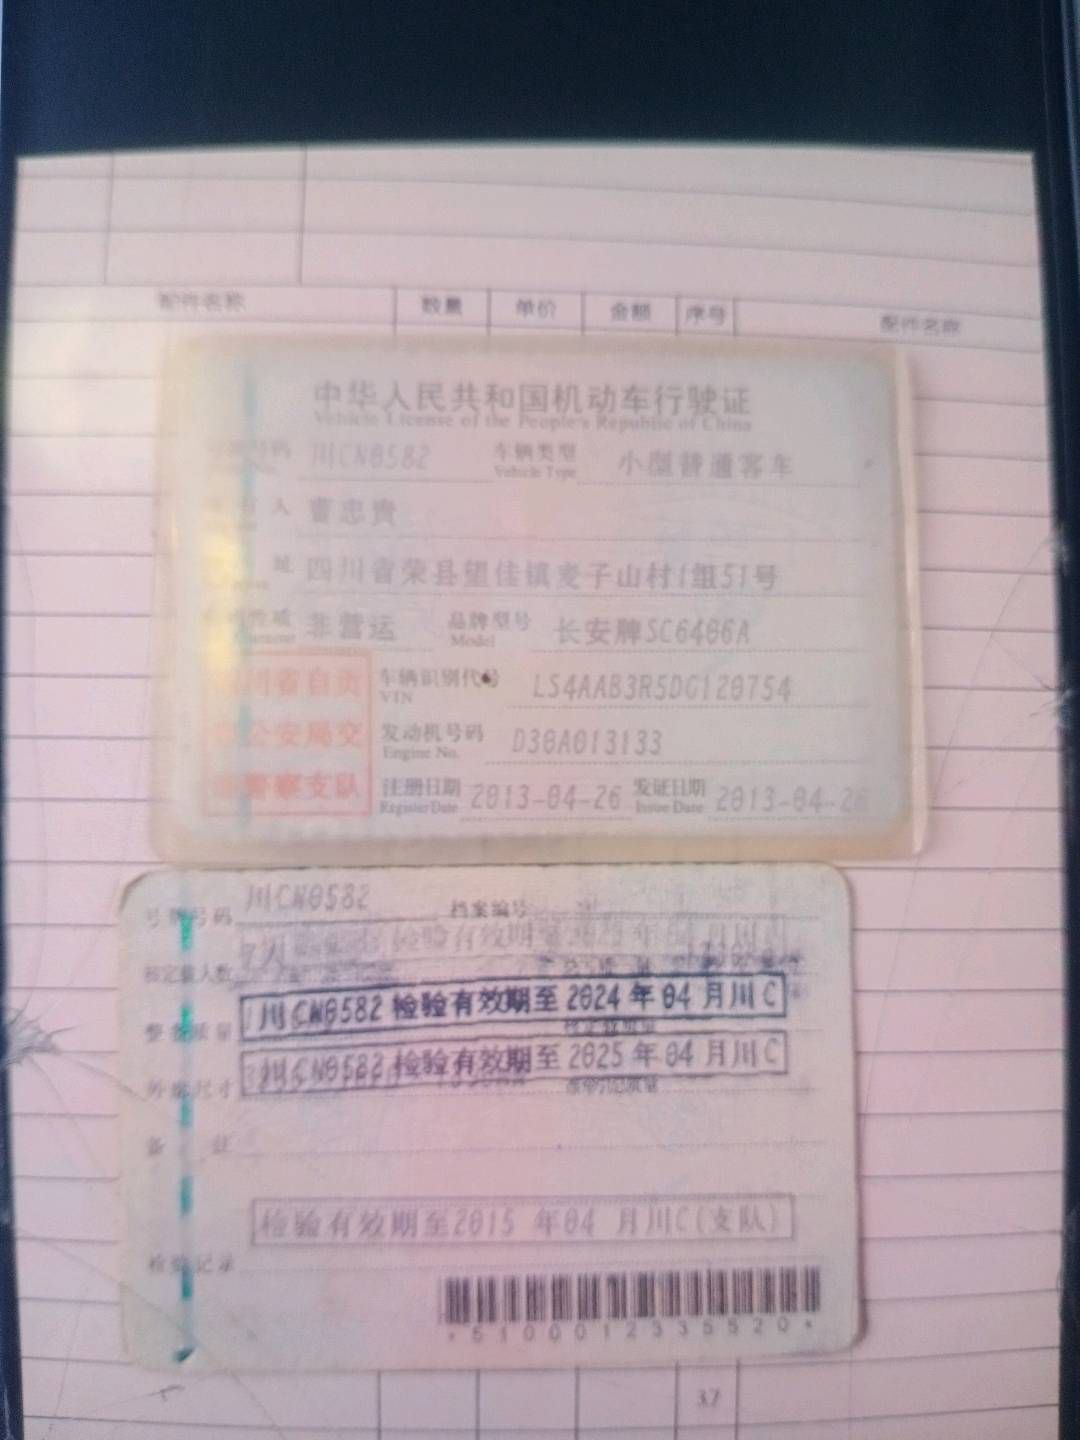 配件名称 数量 单价 金额 序号 配件名称
中华人民共和国机动车行驶证
Vehicle License of the People's Republic of China
号码 川CN0582 车辆类型 小型普通客车
Vehicle Type
人 忠贵
址 四川省荣县望佳镇麦子山村1组51号
性质 非营运 品牌型号 长安牌SC6406A
Model
四川省自贡 车辆识别代号 LS4AAB3R5DG120754
VIN
市公安局交 发动机号码 D30A013133
Engine No.
通警察支队 注册日期 2013-04-26 发证日期 2013-04-26
Register Date Issue Date
号牌号码 川CN0582 档案编号
检验有效期至2023年04月川C
核定载人数
整备质量 川CN0582 检验有效期至 2024 年 04 月川C
外廓尺寸 川CN0582 检验有效期至 2025 年 04 月川C
备 注
检验有效期至2015 年04 月川C(支队)
检验记录
*5100012535520*
37